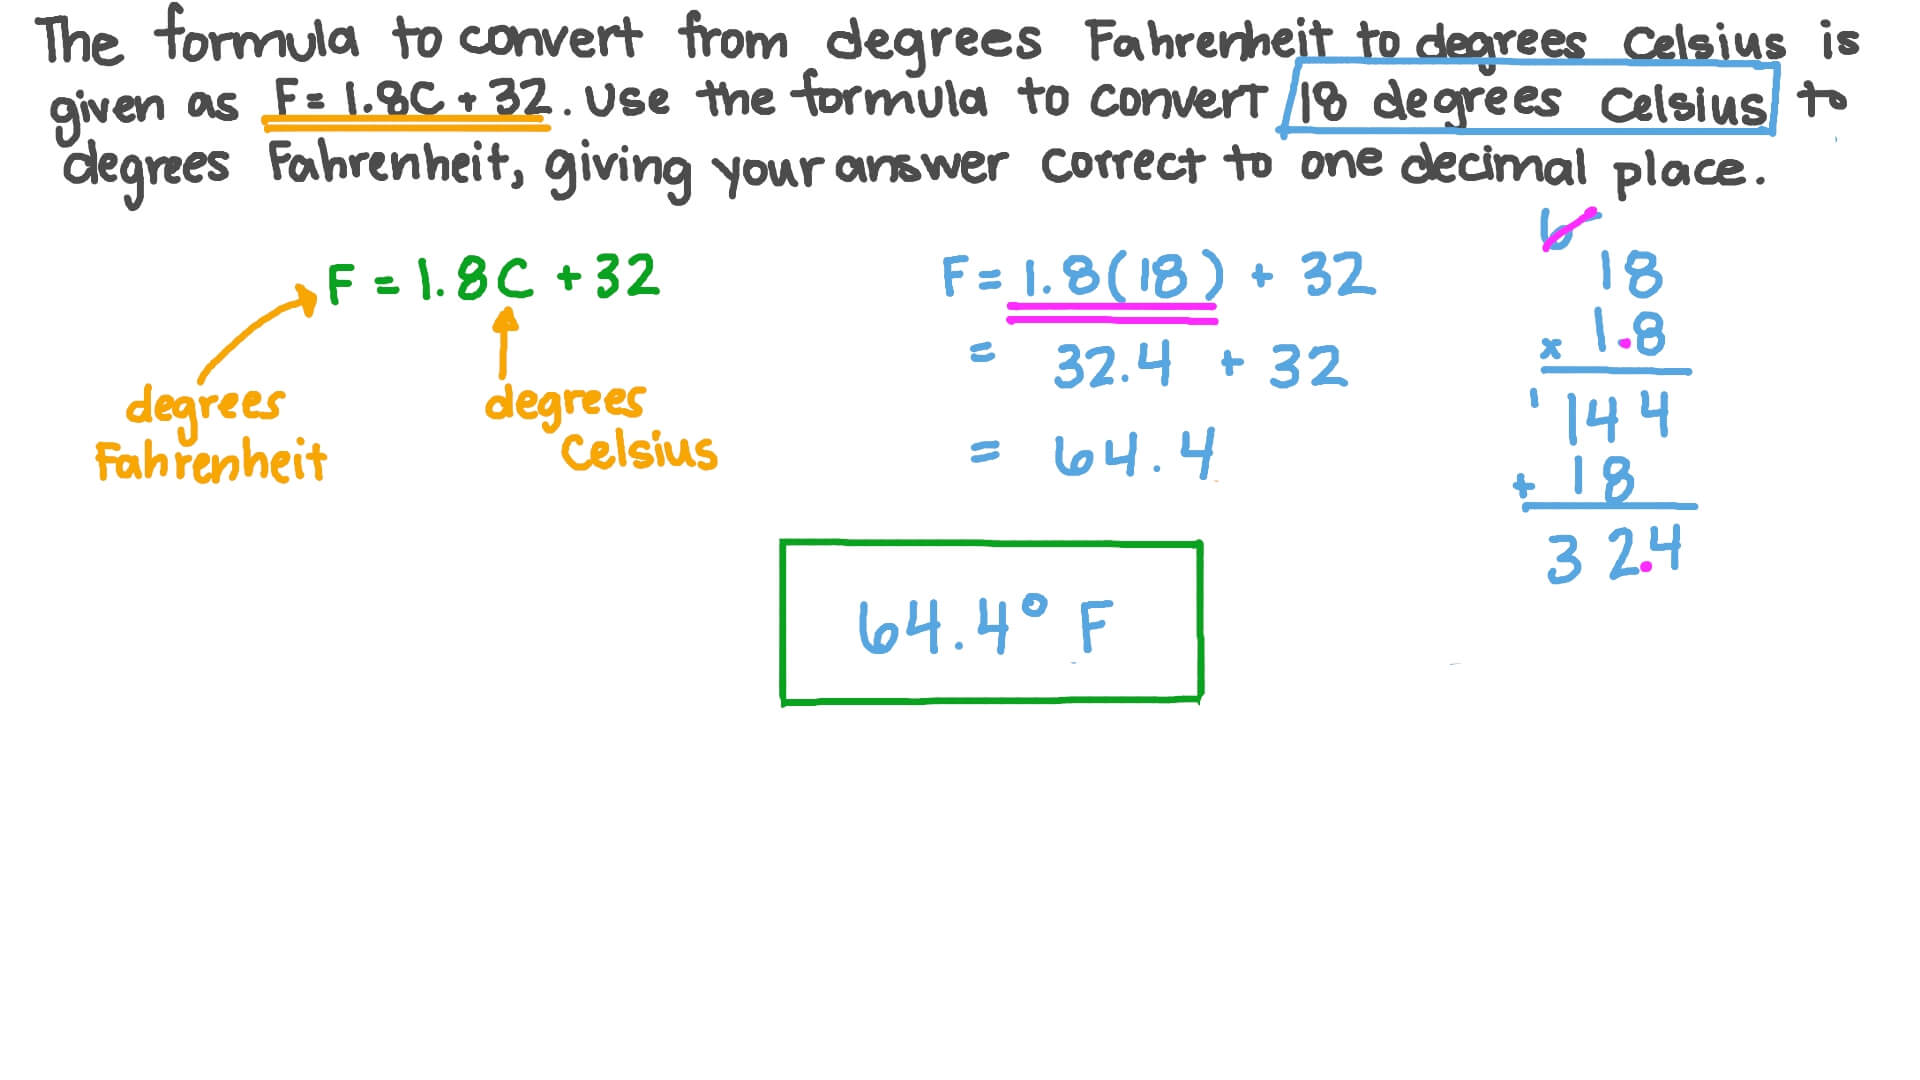 The formula to convert from degrees Fahrenheit to degrees Celsius is
given as F = 1.8C + 32. Use the formula to convert 18 degrees Celsius to
degrees Fahrenheit, giving your answer correct to one decimal place.
F = 1.8C + 32
degrees
Fahrenheit
degrees
Celsius
F = 1.8(18) + 32
= 32.4 + 32
= 64.4
64.4° F
6
18
x 1.8
1 144
+ 18
32.4